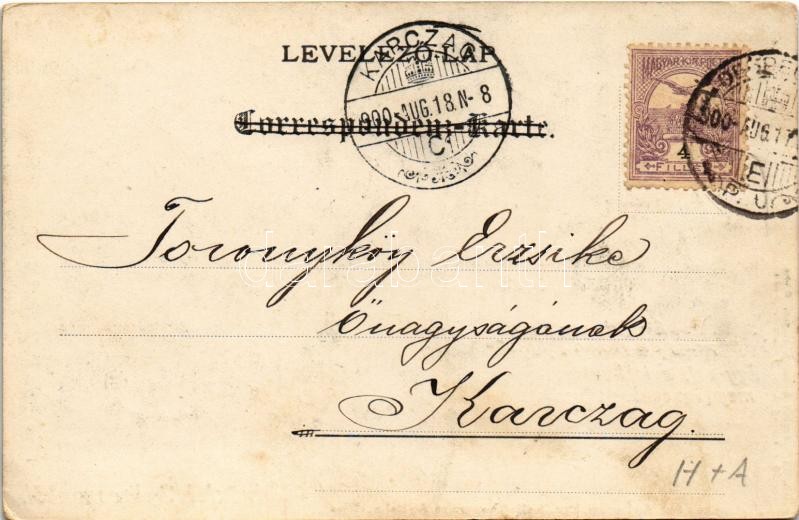 LEVELEZŐ-LAP
KARCZAG
900 AUG. 18. N- 8
C
Correspondenz-Karte.
MAGYAR KIR. POSTA
4
FILLÉR
900 AUG. 17
E
darabanth
Toronyköy Erzsike
Őnagyságának
Karczag.
H + A